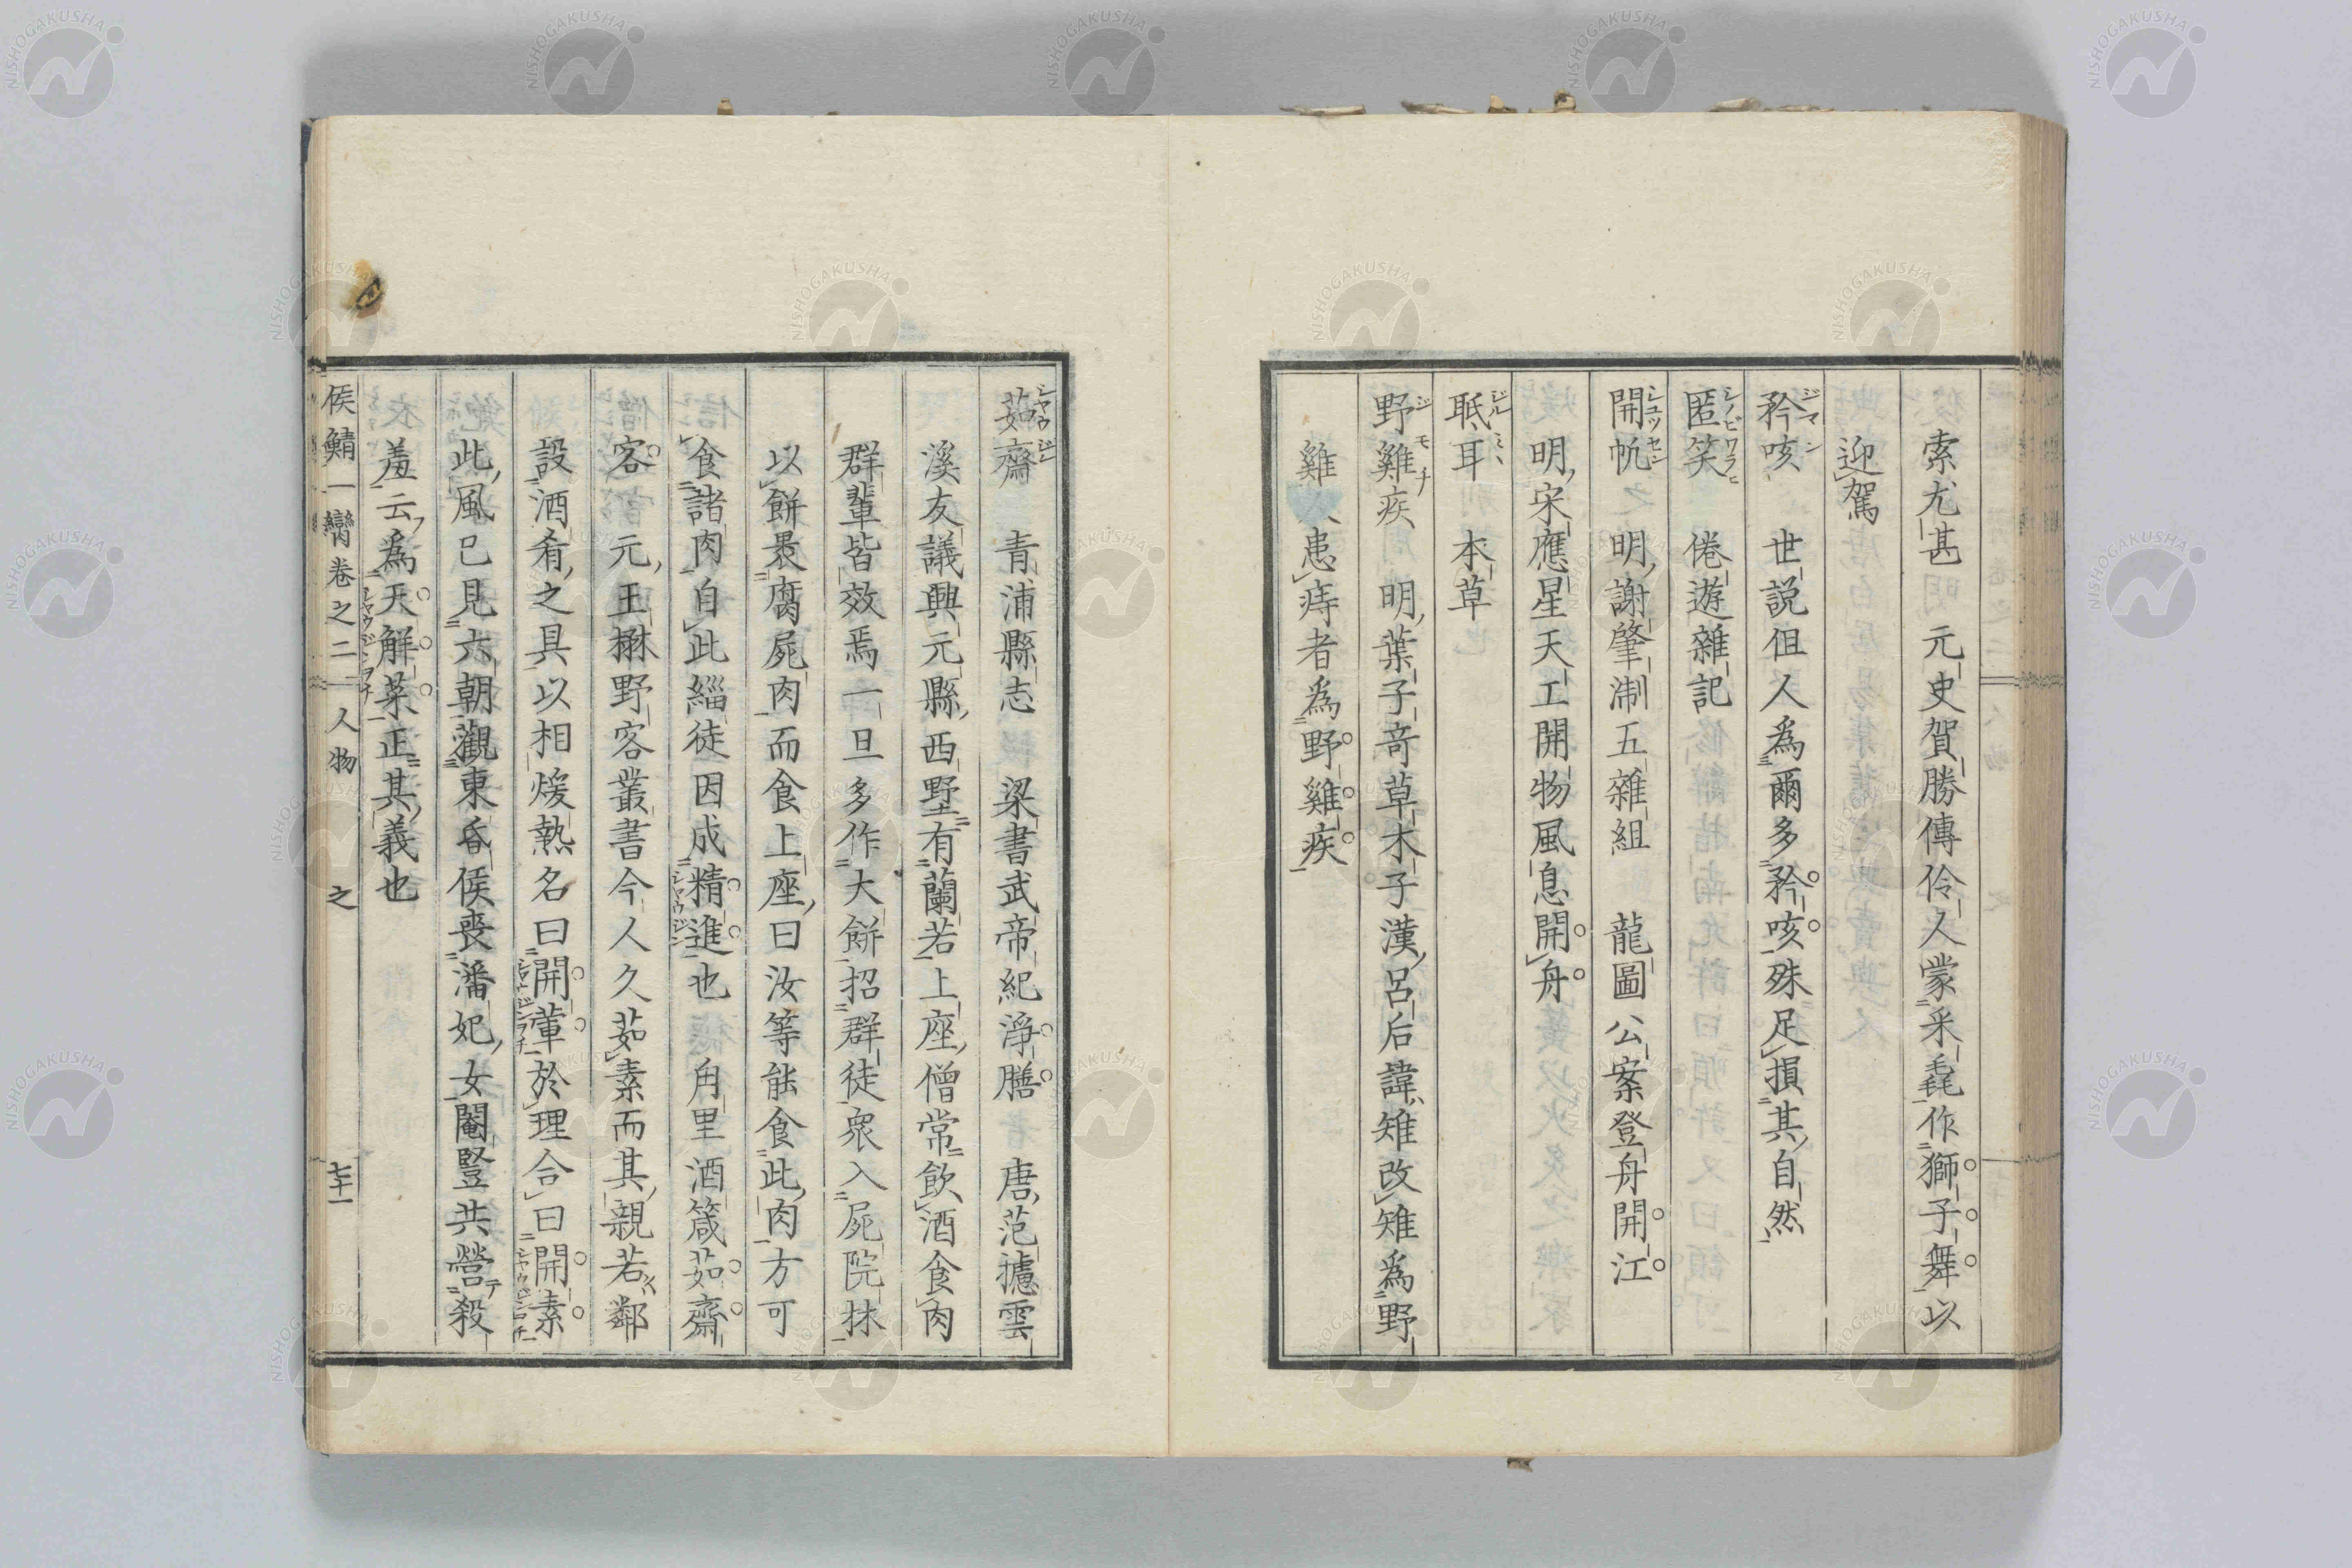 索尤甚　元史賀勝傳伶人蒙采毳作獅子舞以
迎駕
矜咳　世説伹人爲爾多矜咳殊足損其自然
匿笑　倦遊雜記
開帆　明謝肇淛五雜組　龍圖公案登舟開江
明宋應星天工開物風息開舟
耵耳　本草
野雞疾　明葉子竒草木子漢呂后諱雉改雉爲野
雞　患痔者爲野雞疾
茹齋　青浦縣志　梁書武帝紀淨膳　唐范攄雲
溪友議興元縣西墅有蘭若上座僧常飲酒食肉
群輩皆效焉一旦多作大餅招群徒衆入屍院抹
以餅褁腐屍肉而食上座曰汝等能食此肉方可
食諸肉自此緇徒因成精進也　甪里酒箴茹齋
客　元王楙野客叢書今人久茹素而其親若鄰
設酒肴之具以相煖熱名曰開葷於理合曰開素
此風已見六朝觀東昏侯喪潘妃女閹豎共營殺
羞云爲天解菜正其義也
侯鯖一臠卷之二　人物　之　七十一
NISHOGAKUSHA